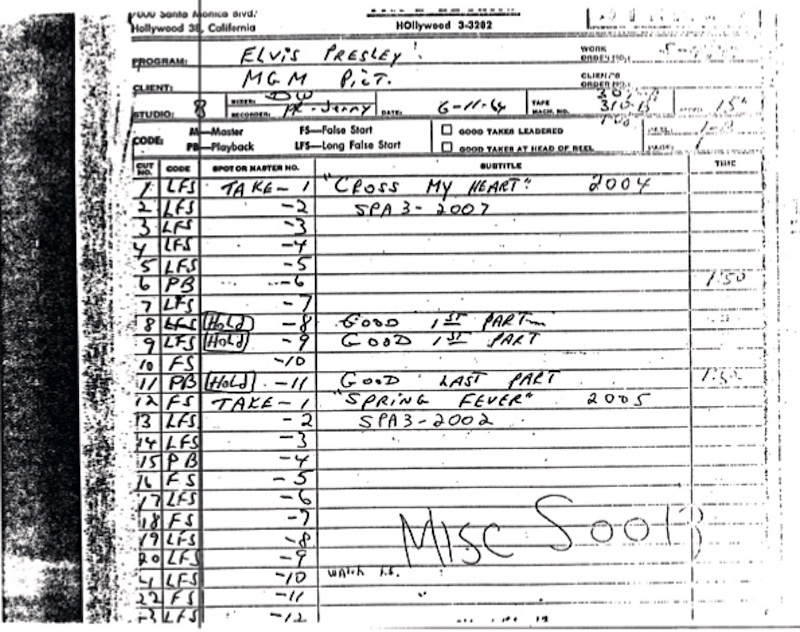 7000 Santa Monica Blvd.
Hollywood 38, California HOllywood 3-3282
PROGRAM: ELVIS PRESLEY WORK ORDER NO.:
CLIENT: MGM PICT. CLIENT'S ORDER NO.:
STUDIO: 8 MIXER: DW RECORDER: JERRY DATE: 6-11-64 TAPE MACH. NO. 310-B
CODE: M—Master FS—False Start GOOD TAKES LEADERED
PB—Playback LFS—Long False Start GOOD TAKES AT HEAD OF REEL
CUT NO. CODE SPOT OR MASTER NO. SUBTITLE TIME
1 LFS TAKE-1 "CROSS MY HEART" 2004
2 LFS -2 SPA3-2007
3 LFS -3
4 LFS -4
5 LFS -5
6 PB -6 1:50
7 LFS -7
8 LFS HOLD -8 GOOD 1ST PART
9 LFS HOLD -9 GOOD 1ST PART
10 FS -10
11 PB HOLD -11 GOOD LAST PART
12 FS TAKE-1 "SPRING FEVER" 2005
13 LFS -2 SPA3-2002
14 LFS -3
15 PB -4
16 FS -5
17 LFS -6
18 FS -7
19 LFS -8
20 LFS -9
MISC
LFS -10
22 FS -11
LFS -12